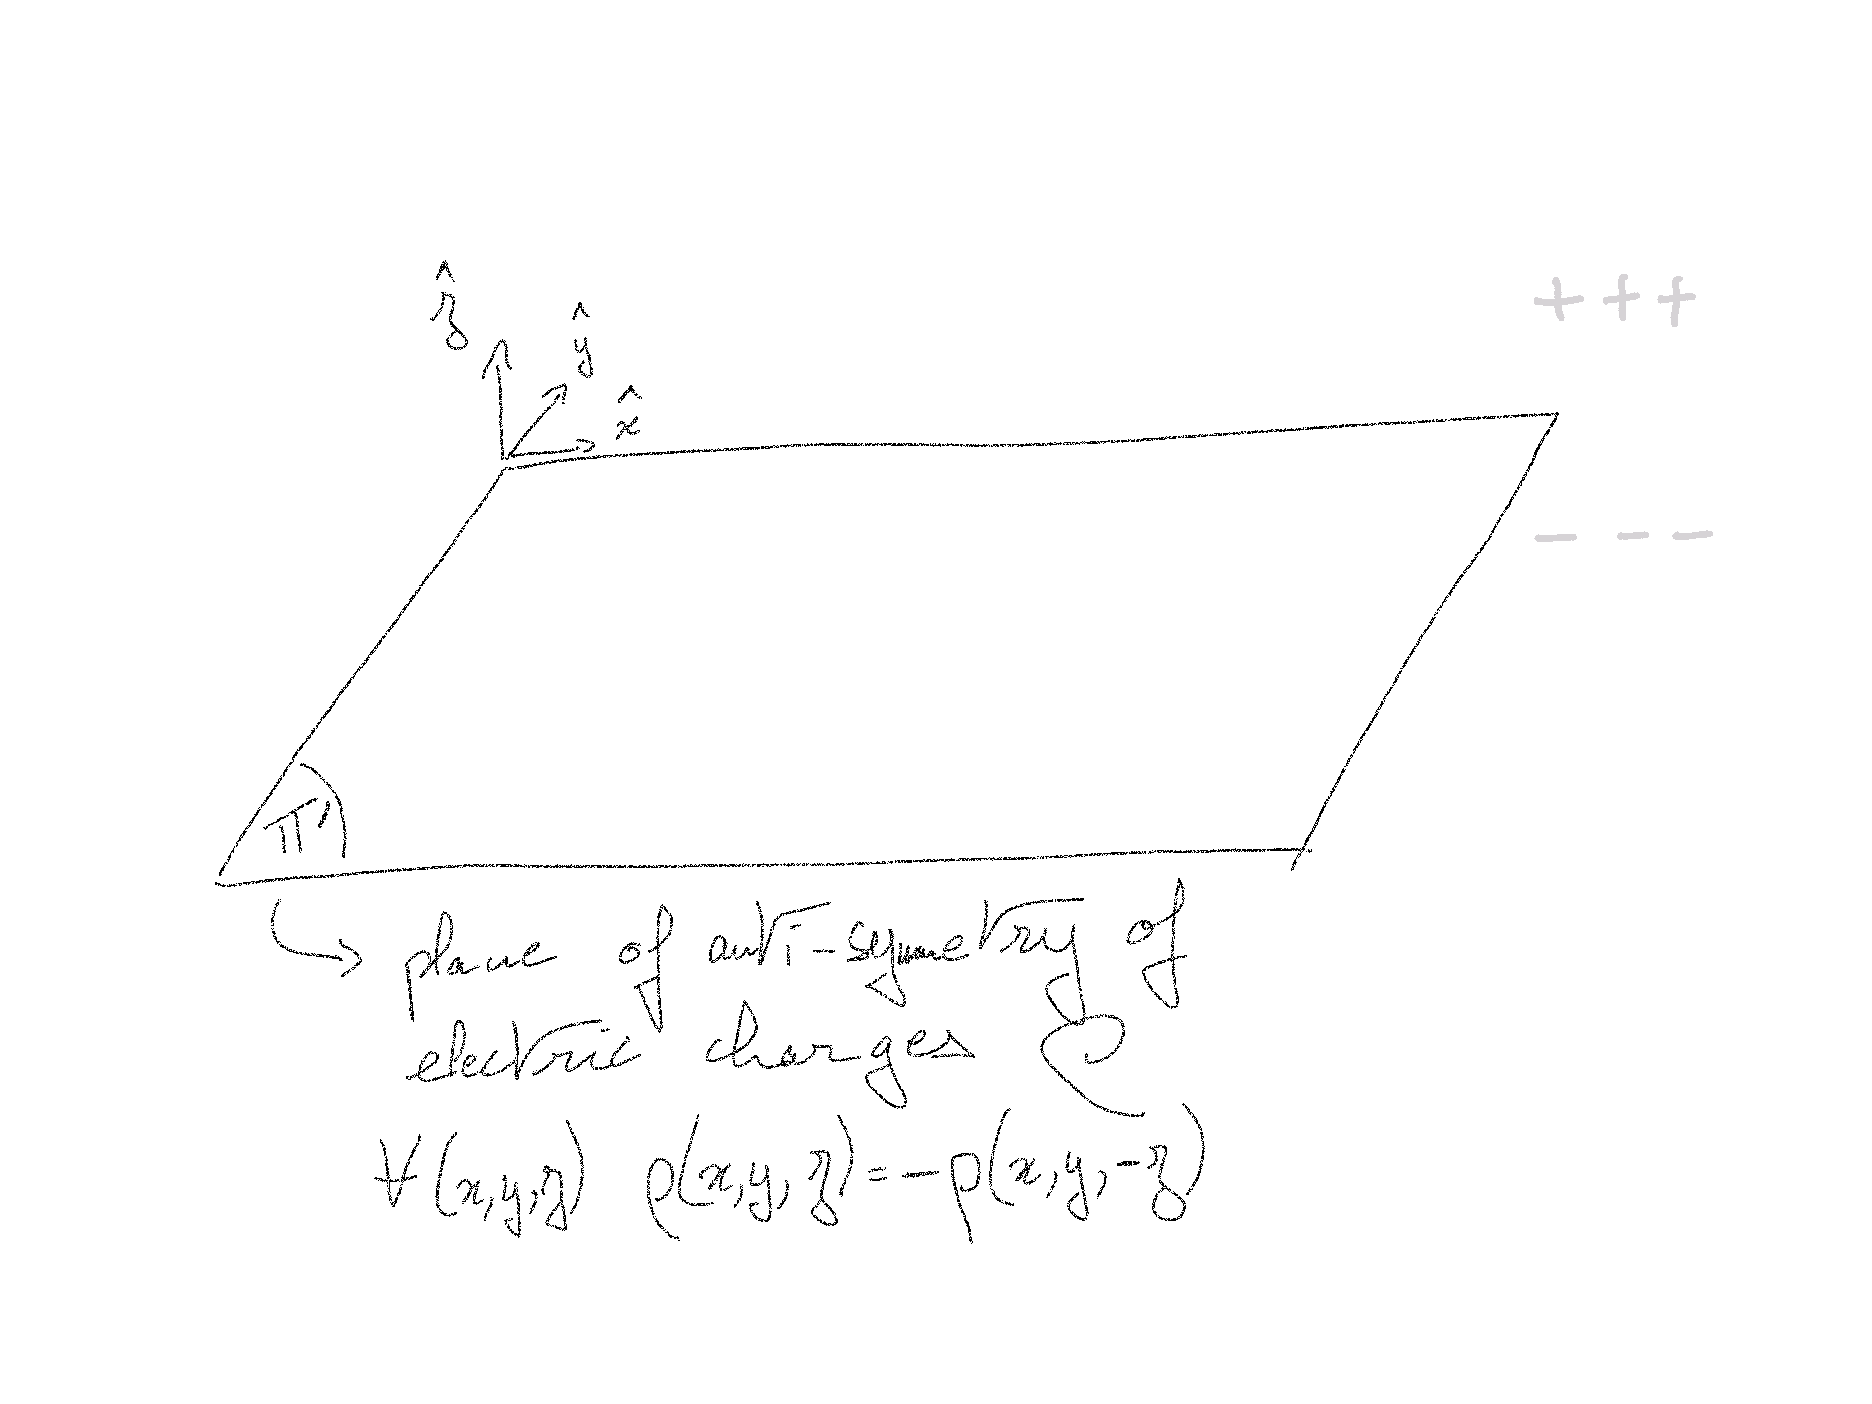 + + +
ẑ ŷ x̂
- - -
π'
↳ plane of anti-symmetry of
electric charges
∀(x,y,z) ρ(x,y,z)=-ρ(x,y,-z)